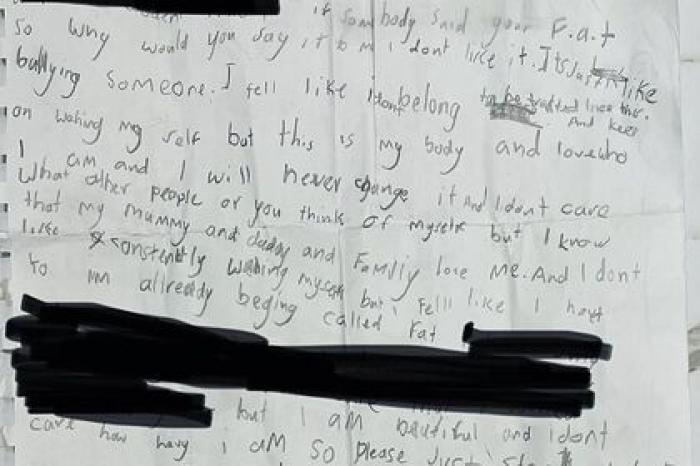 if sombody said your F.a.t
so why would you say it to m I dont like it. Its just like
bullying someone. I fell like i dont belong to be traeted like this.
And keep
on wahing my self but this is my body and love who
I am and I will never change it And I dont care
What other people or you think of myselfe but I know
that my mummy and daddy and Family love me. And I dont
like constently wahing myself but i fell like I haft
to im allready beging called Fat
but I am beautiful and I dont
care how hevy I am so please Just